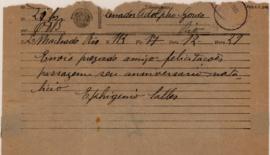 Senador Adolpho Gordo
Rio
Machado Rio 113 14 12 27
Envio prezado amigo felicitações
passagem seu anniversario nata
licio
Ephigenio Salles